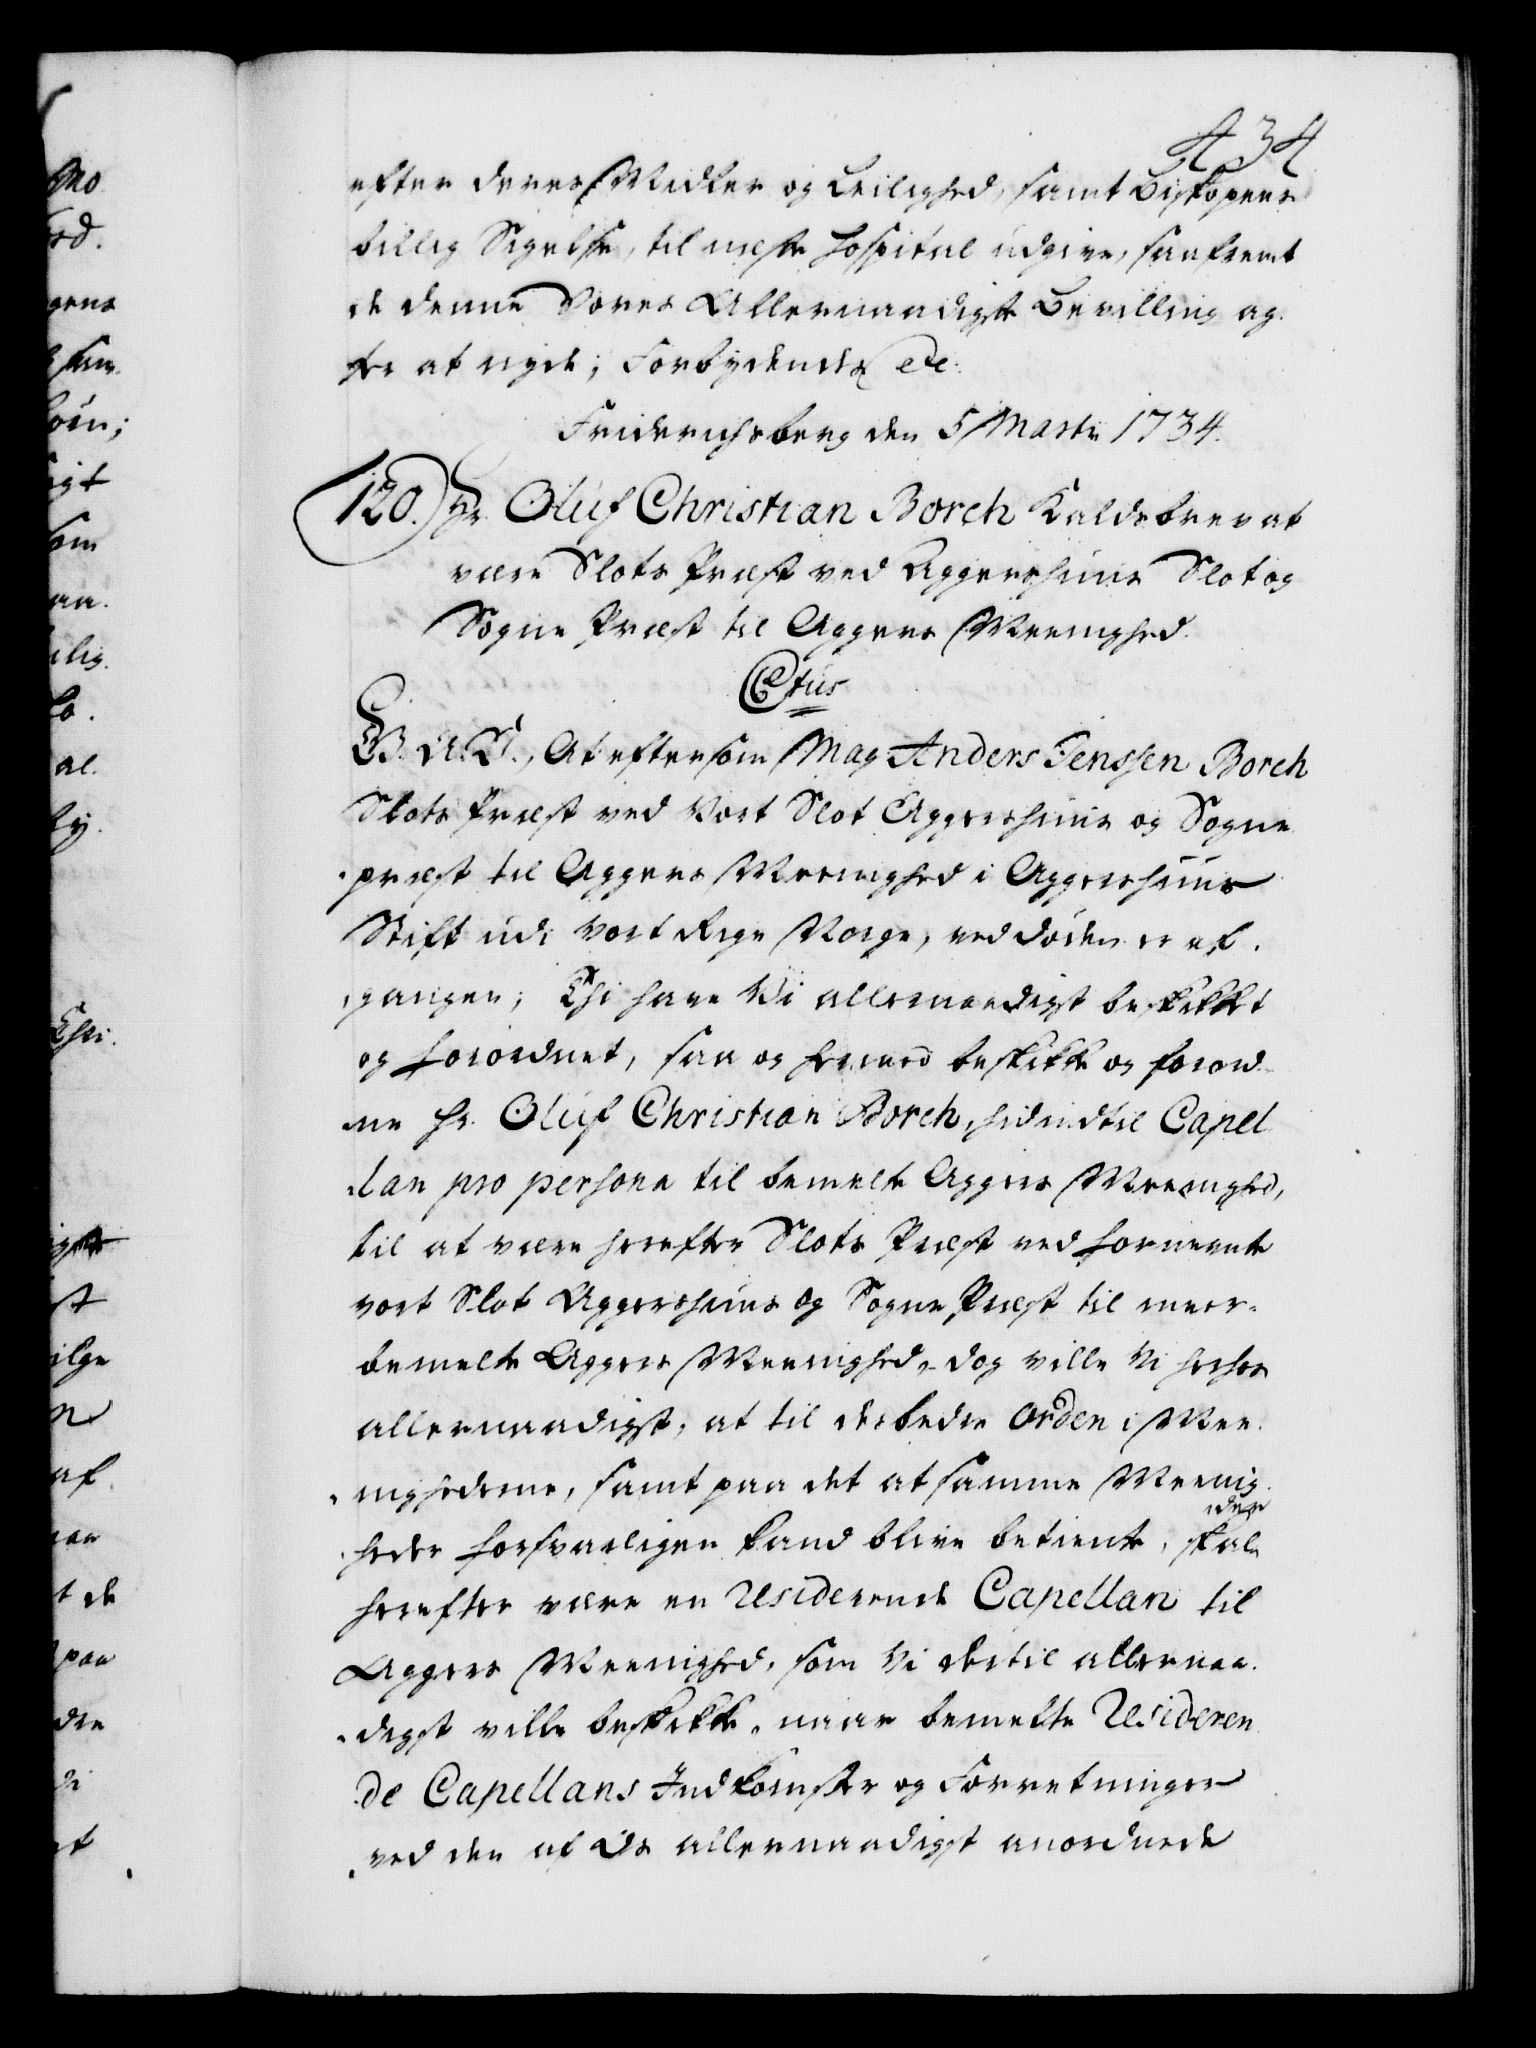 434
efter deres Midler og Leilighed, samt Biskopens
billig Sigelse, til neste Hospital udgive, saafremt
de denne Vores Allernaadigste Bevilling ag-
ter at nyde; Forbydendes etc.
Friderichsberg den 5 Martii 1734.
120.) Hr. Oluf Christian Borch Kaldsbrev at
være Slots Præst ved Aggershuus Slot og
Sogne Præst til Aggers Meenighed.
C6tus
G. A. V., At eftersom Mag. Anders Jenssen Borch
Slots Præst ved Vort Slot Aggershuus og Sogne
præst til Aggers Meenighed i Aggershuus
Stift udi Vort Rige Norge, ved døden er af-
gangen; Thi have Vi allernaadigst beskikket
og forordnet, saa og hermed beskikke og forord-
ne Hr. Oluf Christian Borch, hidindtil Capel
lan pro persona til bemelte Aggers Meenighed,
til at være herefter Slots Præst ved fornevnte
vort Slot Aggershuus og Sogne Præst til meer-
bemelte Aggers Meenighed, dog ville Vi herhos
allernaadigst, at til des bedre Orden i Mee-
nighederne, samt paa det at samme Meenig-
heder forsvarligen kand blive betient, skal der
herefter være en Residerende Capellan til
Aggers Meenighed, som Vi dertil allernaa-
digst ville beskikke, naar bemelte Resideren
de Capellans Indkomster og Forretninger
ved den af Os allernaadigst anordnede